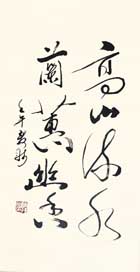 高山流水
蘭蕙幽香
壬午